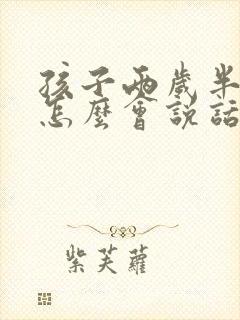 孩子兩歲半
怎麼會說話
紫芙蘿